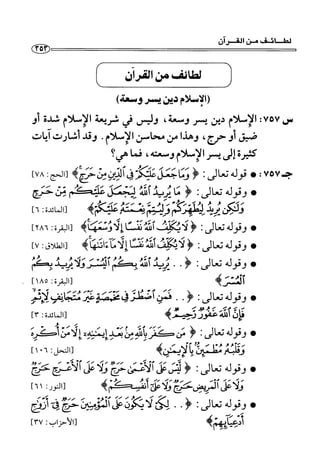 لطـائـف مـن القـرآن
٢٥٣
لطائف من القرآن
(الإسلام دين يسر وسعة)
س ٧٥٧: الإسلام دين يسر وسعة، وليس في شريعة الإسلام شدة أو
ضيق أو حرج، وهذا من محاسن الإسلام. وقد أشارت آيات
كثيرة إلى يسر الإسلام وسعته، فما هي؟
جـ ٧٥٧: • قوله تعالى: ﴿ وَمَا جَعَلَ عَلَيْكُمْ فِي الدِّينِ مِنْ حَرَجٍ ﴾ [الحج: ٧٨]
• وقوله تعالى: ﴿ مَا يُرِيدُ اللَّهُ لِيَجْعَلَ عَلَيْكُم مِّنْ حَرَجٍ
وَلَٰكِن يُرِيدُ لِيُطَهِّرَكُمْ وَلِيُتِمَّ نِعْمَتَهُ عَلَيْكُمْ ﴾ [المائدة: ٦]
• وقوله تعالى: ﴿ لَا يُكَلِّفُ اللَّهُ نَفْسًا إِلَّا وُسْعَهَا ﴾ [البقرة: ٢٨٦]
• وقوله تعالى: ﴿ لَا يُكَلِّفُ اللَّهُ نَفْسًا إِلَّا مَا آتَاهَا ﴾ [الطلاق: ٧]
• وقوله تعالى: ﴿ .. يُرِيدُ اللَّهُ بِكُمُ الْيُسْرَ وَلَا يُرِيدُ بِكُمُ
الْعُسْرَ ﴾ [البقرة: ١٨٥]
• وقوله تعالى: ﴿ .. فَمَنِ اضْطُرَّ فِي مَخْمَصَةٍ غَيْرَ مُتَجَانِفٍ لِّإِثْمٍ
فَإِنَّ اللَّهَ غَفُورٌ رَّحِيمٌ ﴾ [المائدة: ٣]
• وقوله تعالى: ﴿ مَن كَفَرَ بِاللَّهِ مِن بَعْدِ إِيمَانِهِ إِلَّا مَنْ أُكْرِهَ
وَقَلْبُهُ مُطْمَئِنٌّ بِالْإِيمَانِ ﴾ [النحل: ١٠٦]
• وقوله تعالى: ﴿ لَّيْسَ عَلَى الْأَعْمَىٰ حَرَجٌ وَلَا عَلَى الْأَعْرَجِ حَرَجٌ
وَلَا عَلَى الْمَرِيضِ حَرَجٌ وَلَا عَلَىٰ أَنفُسِكُمْ ﴾ [النور: ٦١]
• وقوله تعالى: ﴿ .. لِكَيْ لَا يَكُونَ عَلَى الْمُؤْمِنِينَ حَرَجٌ فِي أَزْوَاجِ
أَدْعِيَائِهِمْ ﴾ [الأحزاب: ٣٧]